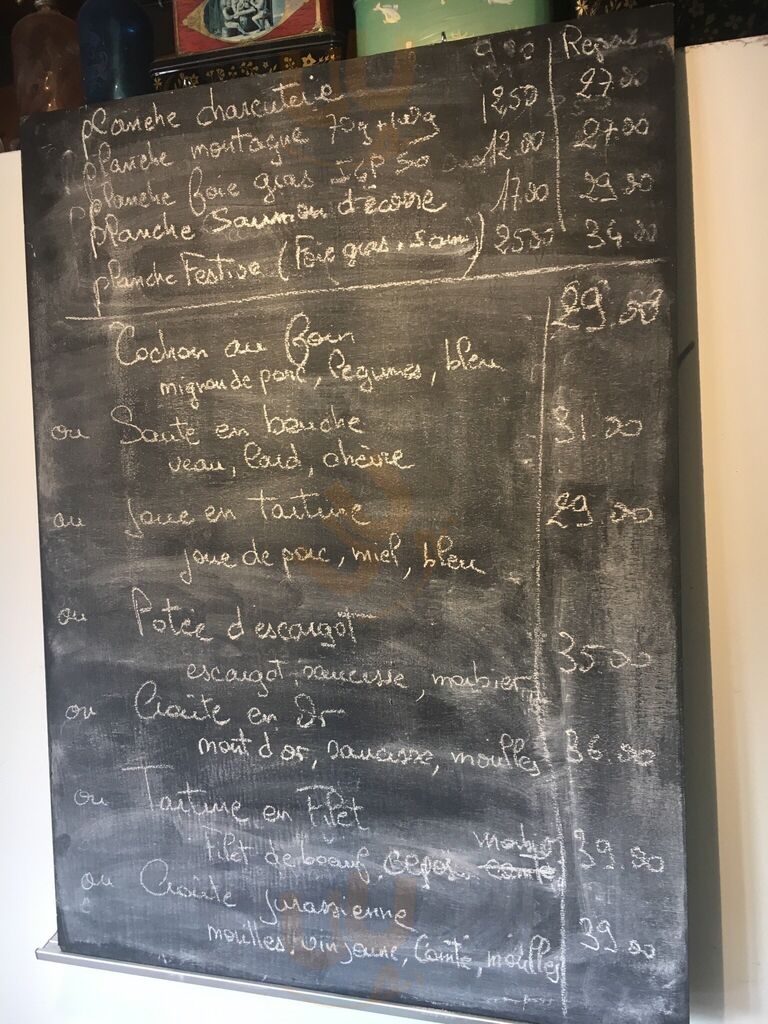 9.00 Repas
planche charcuterie 1250 27.00
planche montagne 70g+100g 12.00 27.00
planche foie gras IGP SO 17.00 29.00
planche Saumon d'écosse 2500 34.00
planche Festive (Foie gras, saum)
Cochon au foin 29.00
mignon de porc, legumes, bleu
ou Saute en bouche 31.00
veau, lard, chèvre
ou Joue en tartine 29.00
joue de porc, miel, bleu
ou Potée d'escargot
escargot, saucisse, morbier 35.00
ou Croûte en Or
mont d'or, saucisse, morilles 36.00
ou Tartine en Filet
morbier
Filet de boeuf, cepes, comté 39.00
ou Croûte jurassienne
morilles, vin jaune, Comté, morilles 39.00